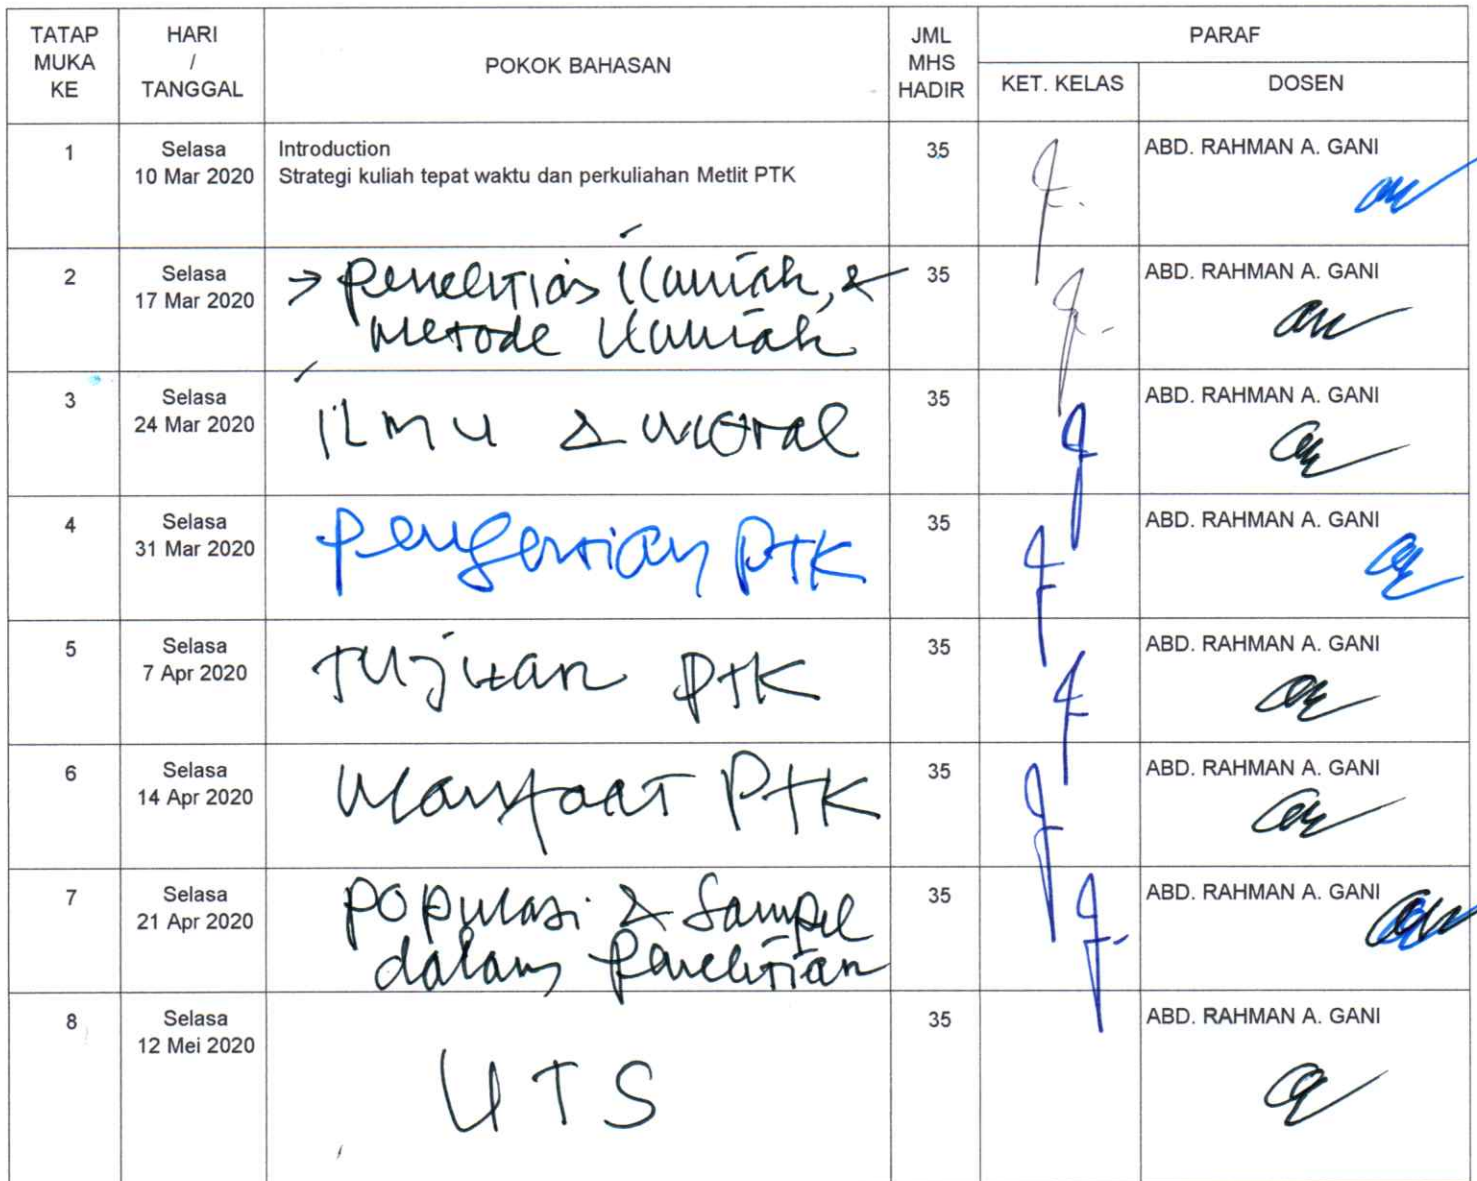 TATAP MUKA KE
HARI / TANGGAL
POKOK BAHASAN
JML MHS HADIR
PARAF
KET. KELAS
DOSEN
1
Selasa
10 Mar 2020
Introduction
Strategi kuliah tepat waktu dan perkuliahan Metlit PTK
35
ABD. RAHMAN A. GANI
2
Selasa
17 Mar 2020
→ Penelitian ilmiah, &
metode ilmiah
35
ABD. RAHMAN A. GANI
3
Selasa
24 Mar 2020
ilmu & moral
35
ABD. RAHMAN A. GANI
4
Selasa
31 Mar 2020
Pengertian PTK
35
ABD. RAHMAN A. GANI
5
Selasa
7 Apr 2020
Tujuan PTK
35
ABD. RAHMAN A. GANI
6
Selasa
14 Apr 2020
Manfaat PTK
35
ABD. RAHMAN A. GANI
7
Selasa
21 Apr 2020
Populasi & Sampel
dalam Penelitian
35
ABD. RAHMAN A. GANI
8
Selasa
12 Mei 2020
UTS
35
ABD. RAHMAN A. GANI